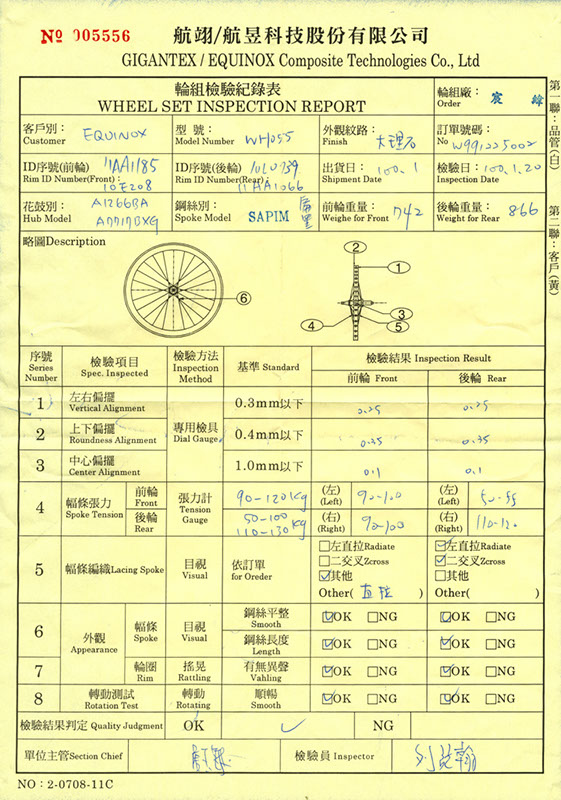 № 005556
航翊/航昱科技股份有限公司
GIGANTEX / EQUINOX Composite Technologies Co., Ltd
輪組檢驗紀錄表
WHEEL SET INSPECTION REPORT
輪組廠：
Order
客戶別：
Customer
EQUINOX
型 號：
Model Number
WH055
外觀紋路：
Finish
大理石
訂單號碼：
No W991225002
ID序號(前輪)
Rim ID Number(Front)：
11AA1185
10E208
ID序號(後輪)
Rim ID Number(Rear)：
11AA1066
出貨日：
Shipment Date
100.1
檢驗日：
Inspection Date
100.1.20
花鼓別：
Hub Model
A1266BA
A7717BXG
鋼絲別：
Spoke Model
SAPIM
扁黑
前輪重量：
Weighe for Front
742
後輪重量：
Weight for Rear
866
第一聯：品管(白)
第二聯：客戶(黃)
略圖Description
1
2
3
4
5
6
序號
Series
Number
檢驗項目
Spec. Inspected
檢驗方法
Inspection
Method
基準 Standard
檢驗結果 Inspection Result
前輪 Front
後輪 Rear
1
左右偏擺
Vertical Alignment
專用檢具
Dial Gauge
0.3mm以下
0.25
0.25
2
上下偏擺
Roundness Alignment
0.4mm以下
0.35
0.35
3
中心偏擺
Center Alignment
1.0mm以下
0.1
0.1
4
幅條張力
Spoke Tension
前輪
Front
後輪
Rear
張力計
Tension
Gauge
90-120Kg
50-100
110-130Kg
(左)
(Left)
90-100
(右)
(Right)
90-100
(左)
(Left)
50-55
(右)
(Right)
110-120
5
幅條編織Lacing Spoke
目視
Visual
依訂單
for Oreder
□左直拉Radiate
□二交叉Zcross
☑其他
Other( 直拉 )
☑左直拉Radiate
☑二交叉Zcross
□其他
Other( )
6
外觀
Appearance
幅條
Spoke
目視
Visual
鋼絲平整
Smooth
☑OK □NG
☑OK □NG
鋼絲長度
Length
☑OK □NG
☑OK □NG
7
輪圈
Rim
搖晃
Rattling
有無異聲
Vahling
☑OK □NG
☑OK □NG
8
轉動測試
Rotation Test
轉動
Rotating
順暢
Smooth
☑OK □NG
☑OK □NG
檢驗結果判定 Quality Judgment
OK
✓
NG
單位主管Section Chief
檢驗員 Inspector
NO：2-0708-11C